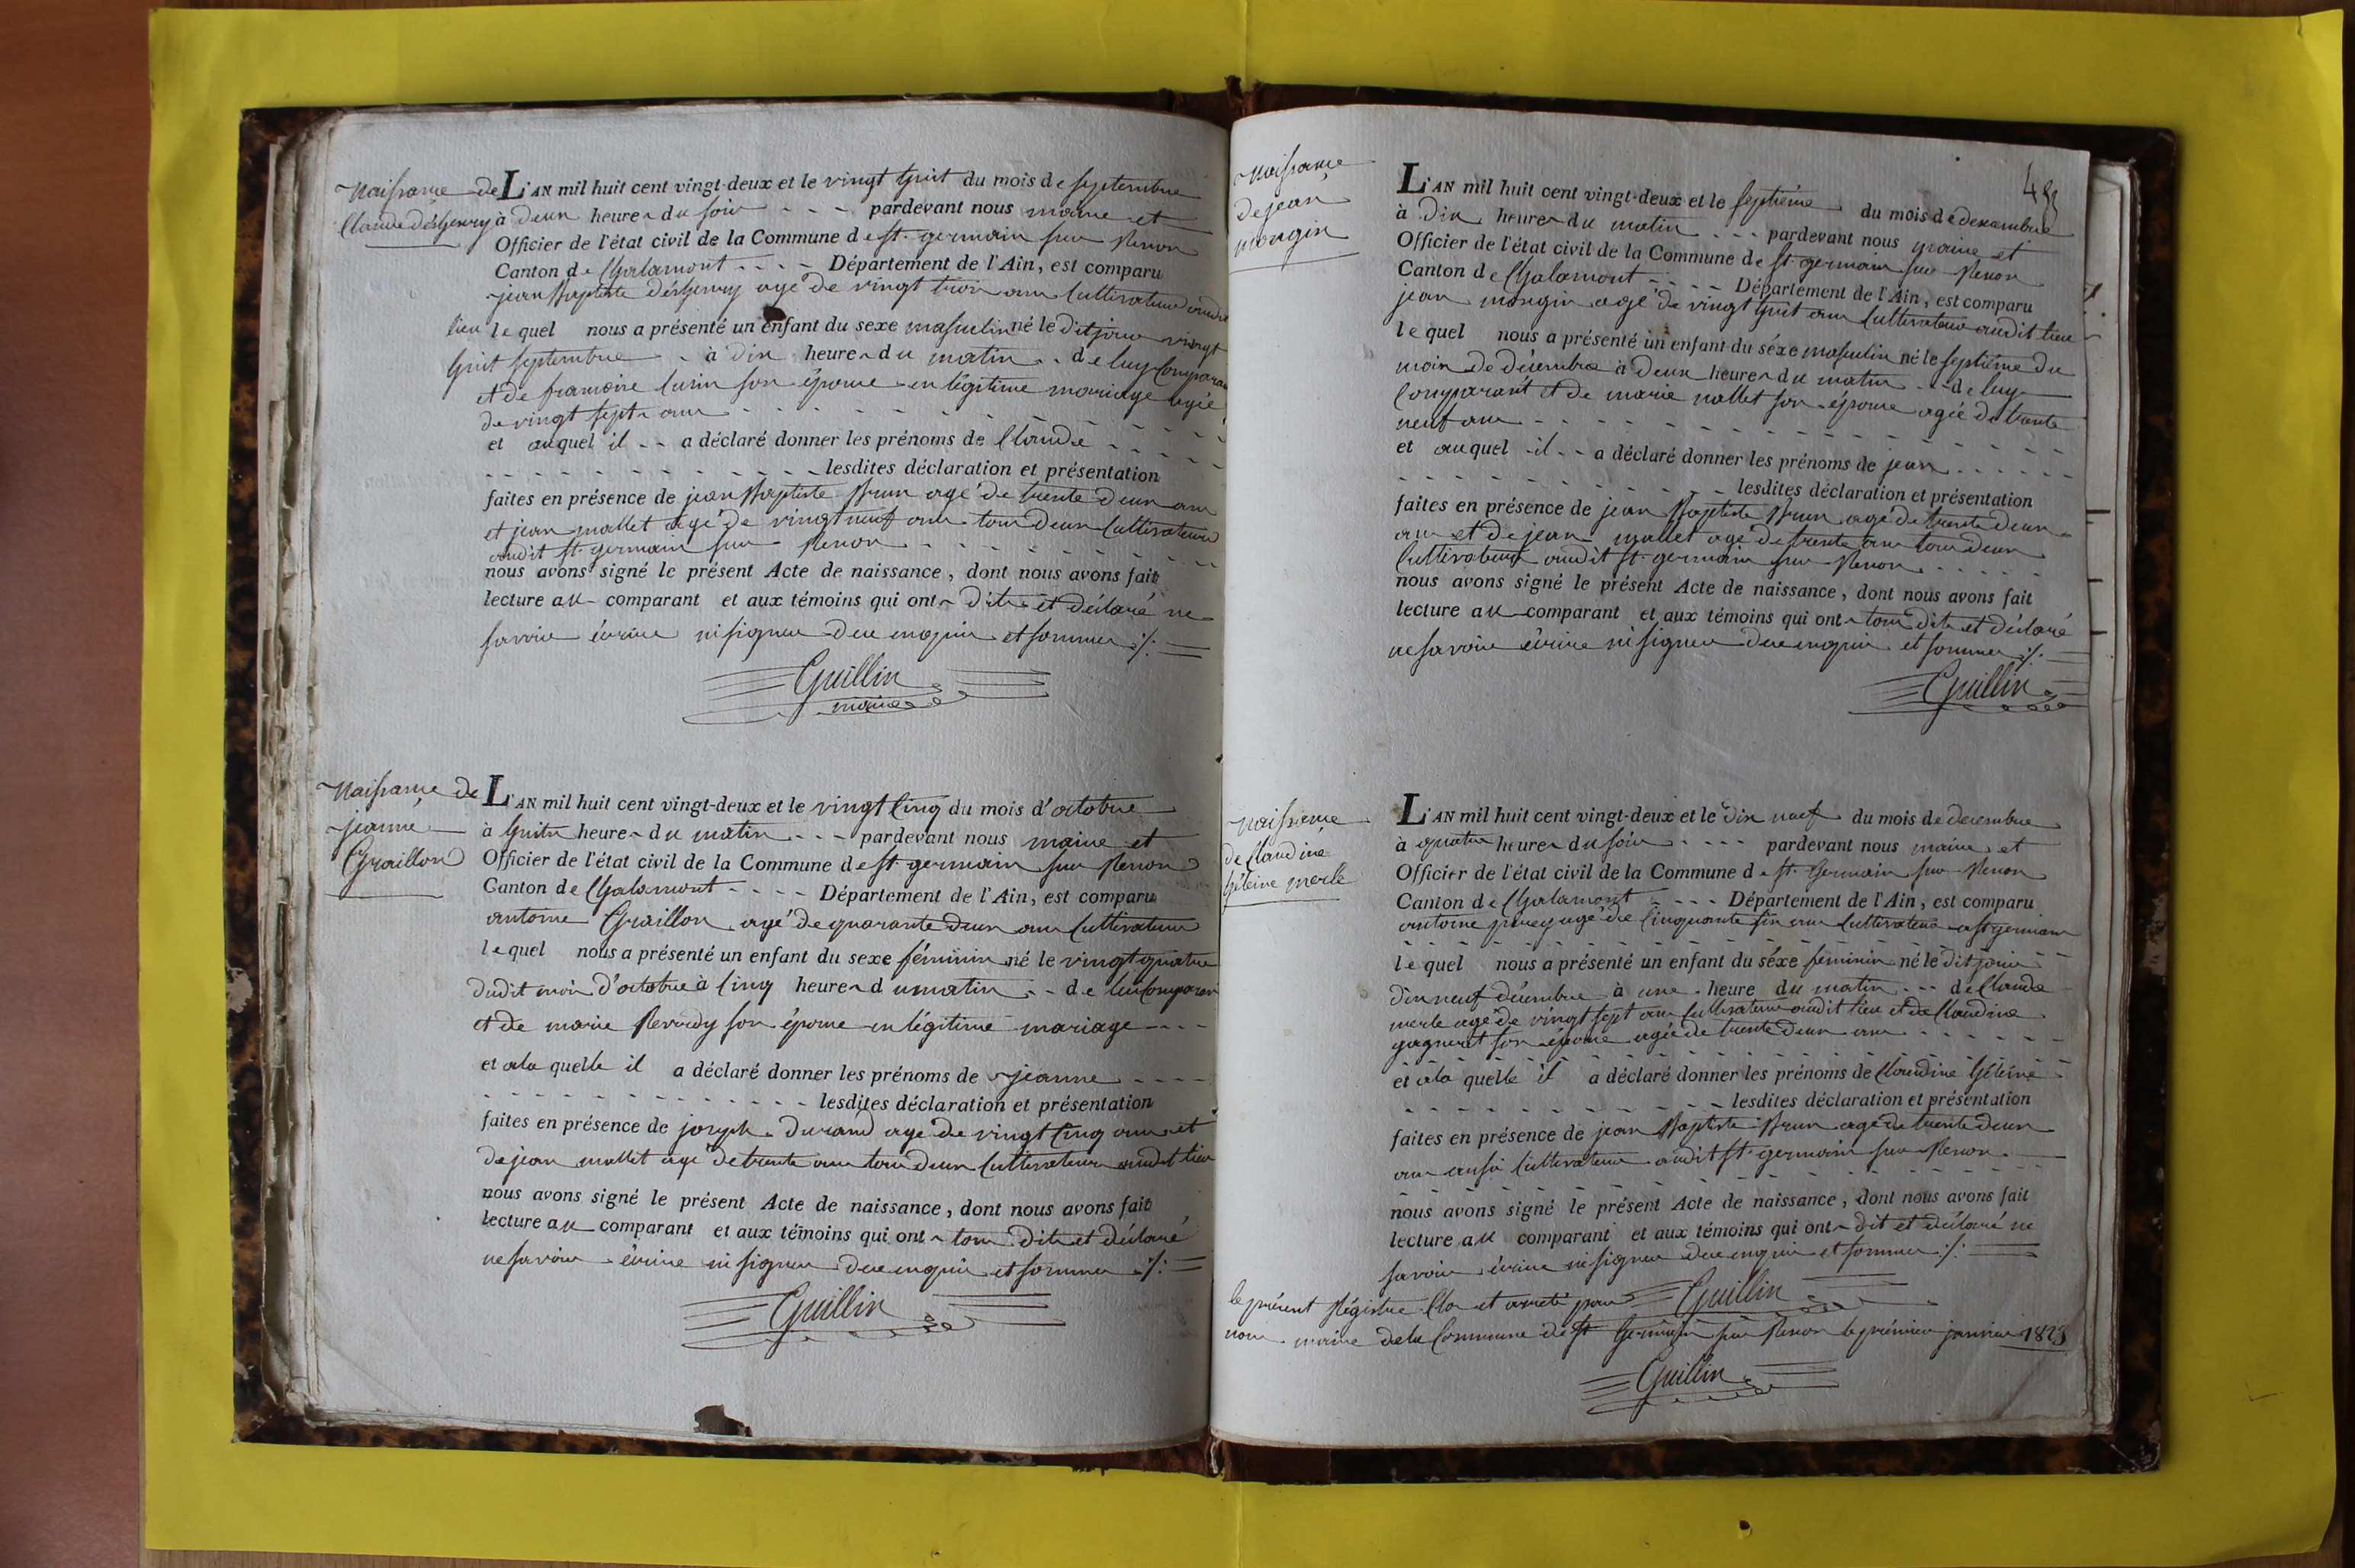 Naissance de
Claude désGenry
L'AN mil huit cent vingt-deux et le vingt huit du mois de septembre
à deux heures du soir - - - pardevant nous maire et
Officier de l'état civil de la Commune de St. germain sur Renon
Canton de Chalamont - - - - Département de l'Ain, est comparu
jean Baptiste désGenry agé de vingt trois ans Cultivateur audit
lieu lequel nous a présenté un enfant du sexe masculin né le dit jour vingt
huit septembre - à dix heures du matin - - de luy Comparant
et de françoise son épouse en légitime mariage agée
de vingt sept ans
et auquel il - - a déclaré donner les prénoms de Claude
lesdites déclaration et présentation
faites en présence de jean Baptiste Brun agé de trente deux ans
et jean mallet agé de vingt neuf ans tous deux Cultivateurs
audit St. germain sur Renon
nous avons signé le présent Acte de naissance, dont nous avons fait
lecture au comparant et aux témoins qui ont dit et déclaré ne
savoir écrire ni signer de ce enquis et sommés ./.
Guillin
maire
Naissance de
jeanne
Graillon
L'AN mil huit cent vingt-deux et le vingt Cinq du mois d'octobre
à huit heures du matin - - - pardevant nous maire et
Officier de l'état civil de la Commune de St. germain sur Renon
Canton de Chalamont - - - - Département de l'Ain, est comparu
antoine Graillon agé de quarante deux ans Cultivateur
lequel nous a présenté un enfant du sexe féminin né le vingt quatre
dudit mois d'octobre à Cinq heures du matin - - de lui Comparant
et de marie Revordy son épouse en légitime mariage - - -
et à la quelle il a déclaré donner les prénoms de jeanne - - - -
lesdites déclaration et présentation
faites en présence de joseph Durand agé de vingt Cinq ans et
de jean mallet agé de trente ans tous deux Cultivateurs audit lieu
nous avons signé le présent Acte de naissance, dont nous avons fait
lecture au comparant et aux témoins qui ont tous dit et déclaré
ne savoir écrire ni signer de ce enquis et sommés ./.
Guillin
Naissance
de jean
mongin
L'AN mil huit cent vingt-deux et le septième du mois de décembre
à dix heures du matin - - - pardevant nous maire et
Officier de l'état civil de la Commune de St. germain sur Renon
Canton de Chalamont - - - - Département de l'Ain, est comparu
jean mongin agé de vingt huit ans Cultivateur audit lieu
lequel nous a présenté un enfant du séxe masculin né le septième du
mois de décembre à deux heures du matin - - de luy
Comparant et de marie mallet son épouse agée de trente
neuf ans
et auquel il - - a déclaré donner les prénoms de jean
lesdites déclaration et présentation
faites en présence de jean Baptiste Brun agé de trente deux
ans et de jean mallet agé de trente ans tous deux
Cultivateurs audit St. germain sur Renon
nous avons signé le présent Acte de naissance, dont nous avons fait
lecture au comparant et aux témoins qui ont tous dit et déclaré
ne savoir écrire ni signer de ce enquis et sommés ./.
Guillin
naissance
de Claudine
héleine merle
L'AN mil huit cent vingt-deux et le dix neuf du mois de décembre
à quatre heures du soir - - - - pardevant nous maire et
Officier de l'état civil de la Commune de St. Germain sur Renon
Canton de Chalamont - - - - Département de l'Ain, est comparu
antoine agé de Cinquante six ans Cultivateur a St germain
lequel nous a présenté un enfant du séxe féminin né le dit jour
dix neuf décembre à une heure du matin - - - de Claude
merle agé de vingt sept ans Cultivateur audit lieu et de Claudine
gagneret son épouse agée de trente deux ans
et à la quelle il a déclaré donner les prénoms de Claudine héleine
lesdites déclaration et présentation
faites en présence de jean Baptiste Brun agé de trente deux
ans aussi Cultivateur audit St. germain sur Renon
nous avons signé le présent Acte de naissance, dont nous avons fait
lecture au comparant et aux témoins qui ont dit et déclaré ne
savoir écrire ni signer de ce enquis et sommés ./.
Guillin
le présent Régistre Clos et arreté par
nous maire de la Commune de St Germain sur Renon le prémier janvier 1823
Guillin